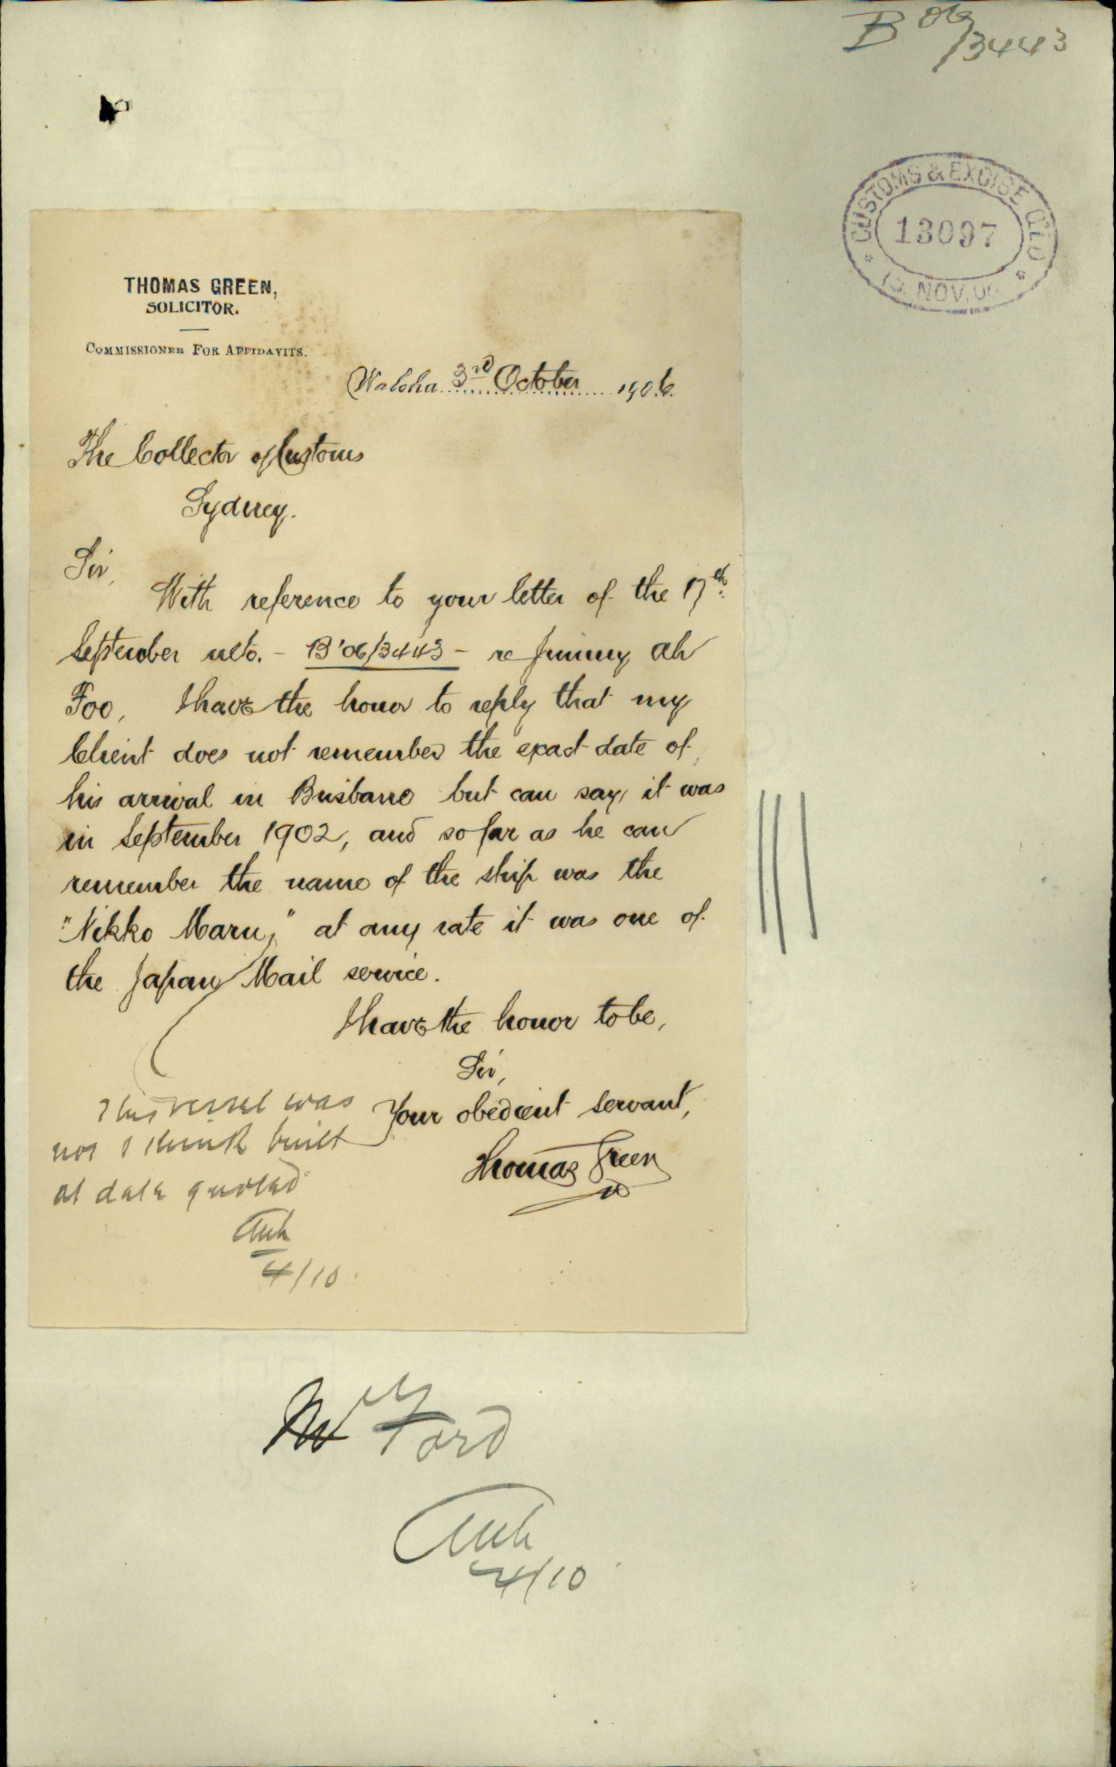 B 06/3443
CUSTOMS & EXCISE
13097
NOV. 06
THOMAS GREEN,
SOLICITOR.
COMMISSIONER FOR AFFIDAVITS.
Walcha 3rd October 1906.
The Collector of Customs
Sydney.
Sir,
With reference to your letter of the 17th
September ulto. - B'06/3443 - re Jimmy Ah
Foo, I have the honor to reply that my
Client does not remember the exact date of
his arrival in Brisbane but can say, it was
in September 1902, and so far as he can
remember the name of the ship was the
"Nikko Maru," at any rate it was one of
the Japan Mail service.
I have the honor to be,
Sir,
Your obedient servant,
Thomas Green
This vessel was
not I think built
at date quoted
4/10
Mr Ford
4/10